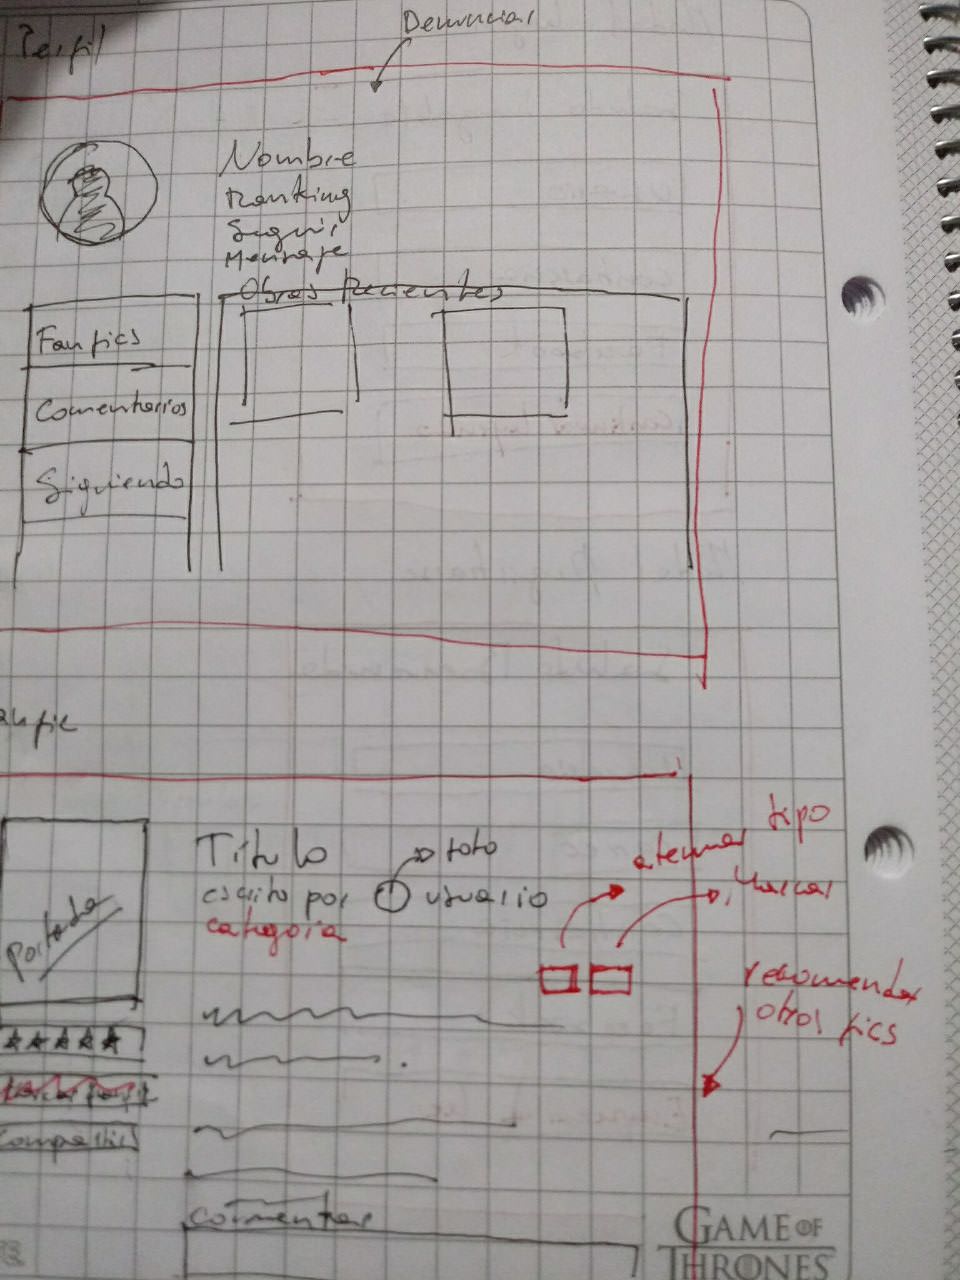 Denunciar
Perfil
Nombre
Ranking
Seguir
Mensaje
Obras Recientes
Fanfics
Comentarios
Siguiendo
anfic
Titulo
foto
escrito por
usuario
categoria
Portada
tipo
Marcar
recomendar
otros fics
Compartir
Comentar
GAME OF
THRONES